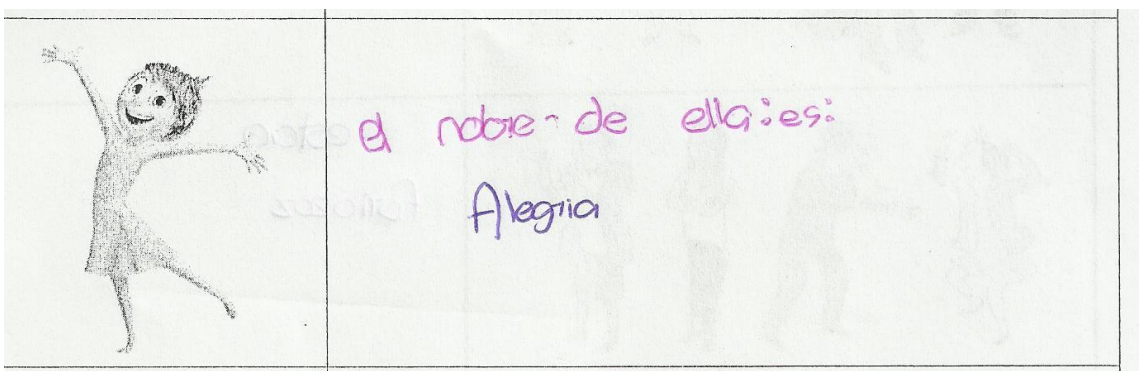 el nobre- de ella:es:
Alegria